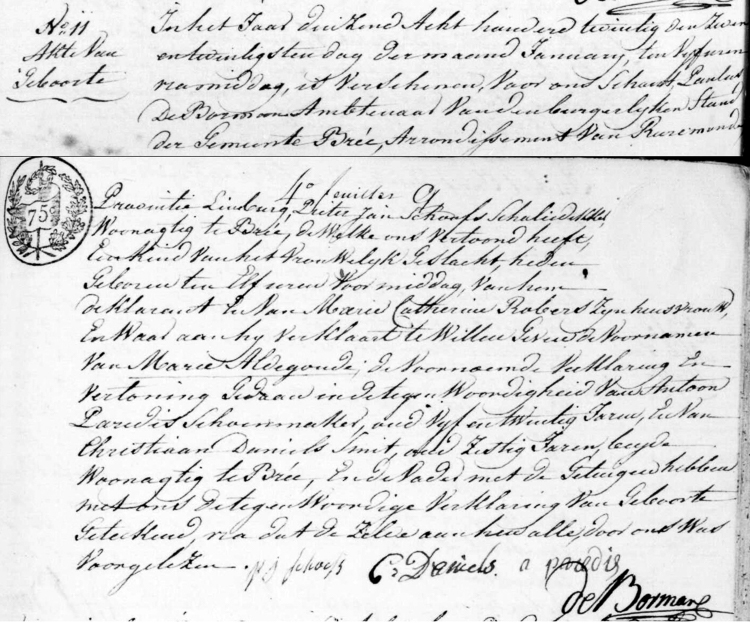 No 11
Akte Van
Geboorte
In het Jaar duizend Acht honderd twintig den Zeven
en twintigsten dag der maand January, ten Vyf uren
namiddag, is Verschenen, Voor ons Schaut, Paulus
De Borman Ambtenaar Van den burgerlyken Stand
der Gemeente Brée, Arrondissement Van Ruremond
4e feuillet
75
Provintie Limburg, Pieter Jan Schoofs Schaliedekker
Woonagtig te Brée, de Welke ons Vertoond heeft,
Een Kind Van het Vrouwelyk Geslacht, heden
Geboren ten Elf uren Voor middag, Van hem
deklarant En Van Marie Catherine Robers Zyn huisvrouw,
En Waar aan hy Verklaart te Willen Geven de Voornamen
Van Marie Aldegonde; de Voornoemde Verklaring En
Vertoning Gedaan in de tegen Woordigheid Van Antoon
Paredis Schoenmaker, oud Vyf en twintig Jaren, En Van
Christiaan Daniels Smit, oud Zestig Jaren, beyde
Woonagtig te Brée, En de Vader met de Getuigen hebben
met ons de tegen Woordige Verklaring Van Geboorte
Geteekend, na dat de Zelve aan hen alle, door ons Was
Voorgelezen. p j schoofs C: Daniels a paredis
de Borman